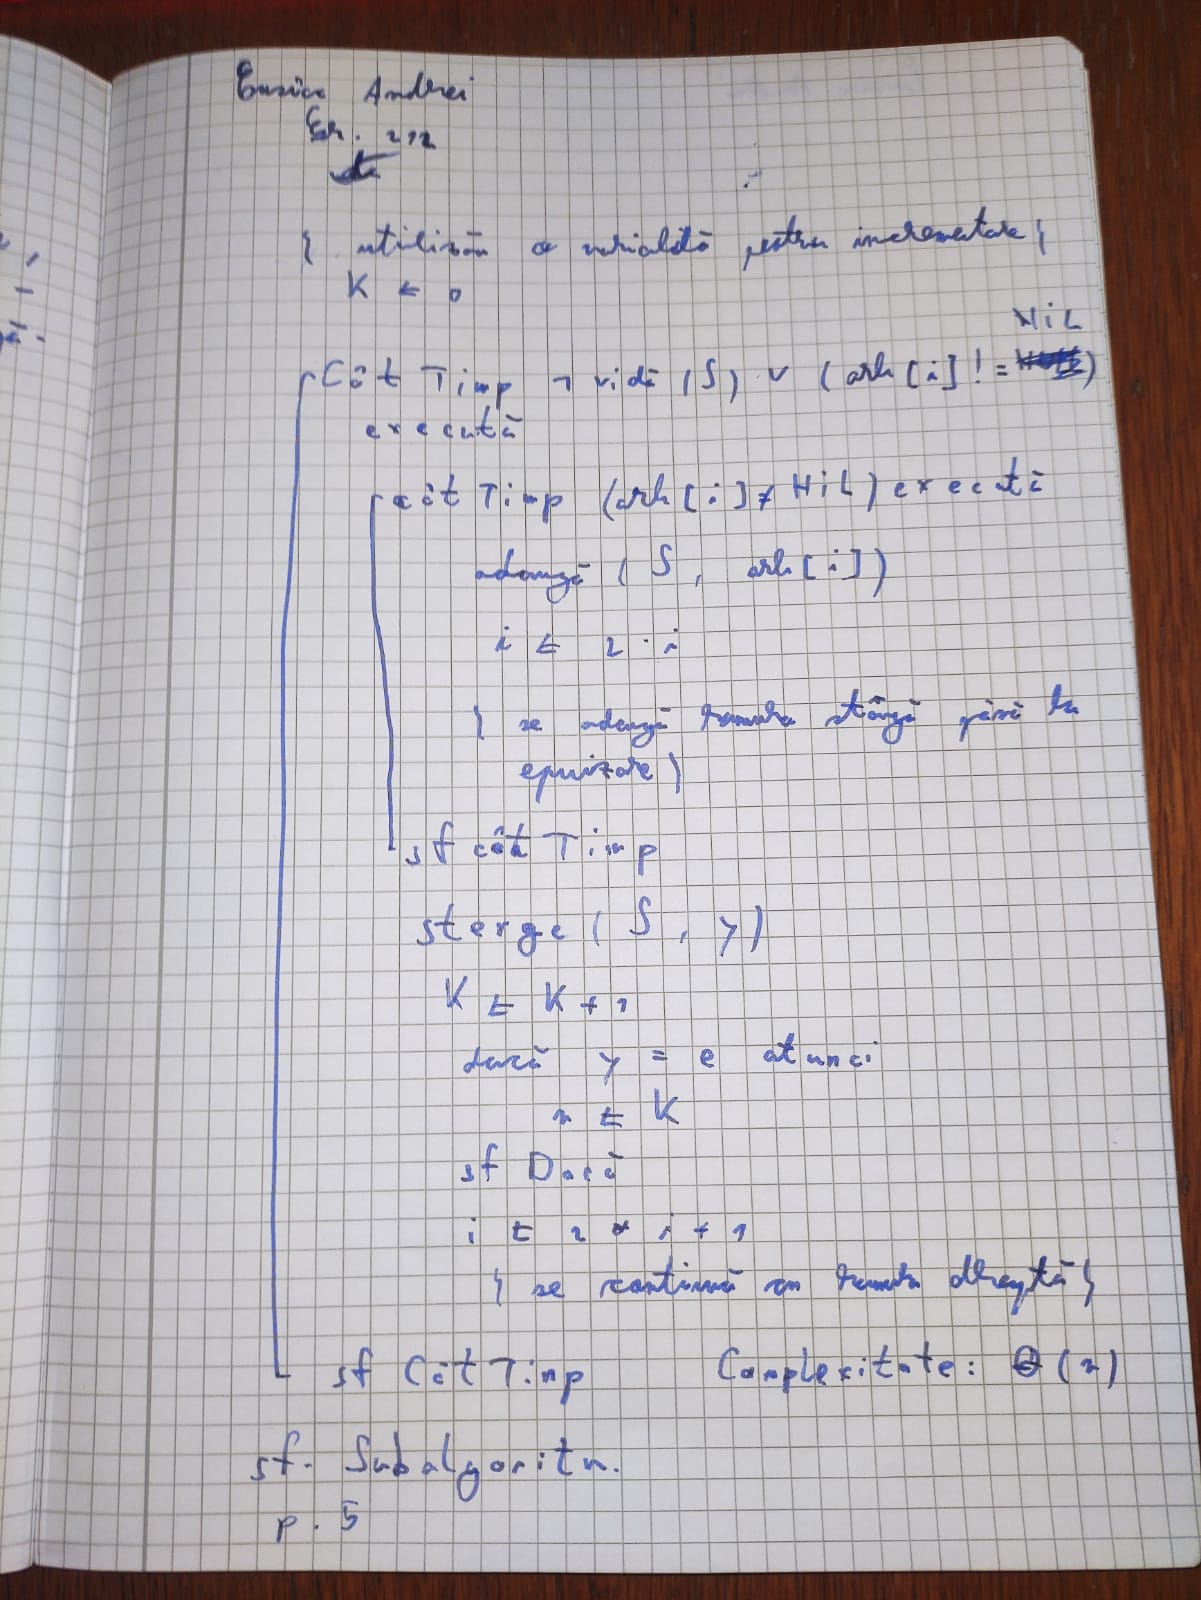 Andrei
Gr. 212
{ utilizăm o variabilă pentru incrementare }
K ← 0
NiL
Cât Timp ¬ vidă (S) ∨ (arb [i] != )
execută
cât Timp (arb [i] ≠ NiL) execută
adaugă (S, arb [i])
i ← 2 · i
{ se adaugă ramura stângă până la
epuizare }
sf cât Timp
sterge (S, y)
K ← K + 1
dacă y = e atunci
n ← K
sf Dacă
i ← 2 * i + 1
{ se continuă cu ramura dreaptă }
sf Cât Timp Complexitate: Θ (n)
sf. Subalgoritm.
p. 5